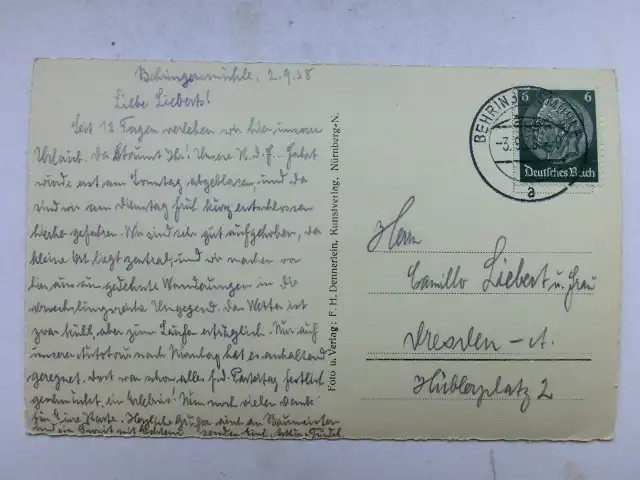 Behringersmühle, 2.9.38
Liebe Lieberts!
Seit 12 Tagen verleben wir hier unsern
Urlaub. Da staunt Ihr! Unsere K.d.F.-Fahrt
wurde erst am Sonntag abgeblasen, und da
sind wir am Dienstag früh kurz entschlossen
gefahren. Wir sind sehr gut aufgehoben, der
kleine Ort liegt zentral, und wir machen von
hier aus ausgedehnte Wanderungen in die
abwechslungsreiche Umgegend. Das Wetter ist
zwar kühl, aber zum Laufen erträglich. Nur auf
unserer Autotour nach Nürnberg hat es anhaltend
geregnet. Dort war schon alles f. d. Parteitag festlich
geschmückt, ein Erlebnis! Nun noch vielen Dank
für Eure Karte. Herzliche Grüße
und ein Prosit mit senden
Foto u. Verlag: F. H. Dennerlein, Kunstverlag, Nürnberg-N.
BEHRING
6 6
Deutsches Reich
a
Herrn
Camillo Liebert u. Frau
Dresden-A.
Hüblerplatz 2